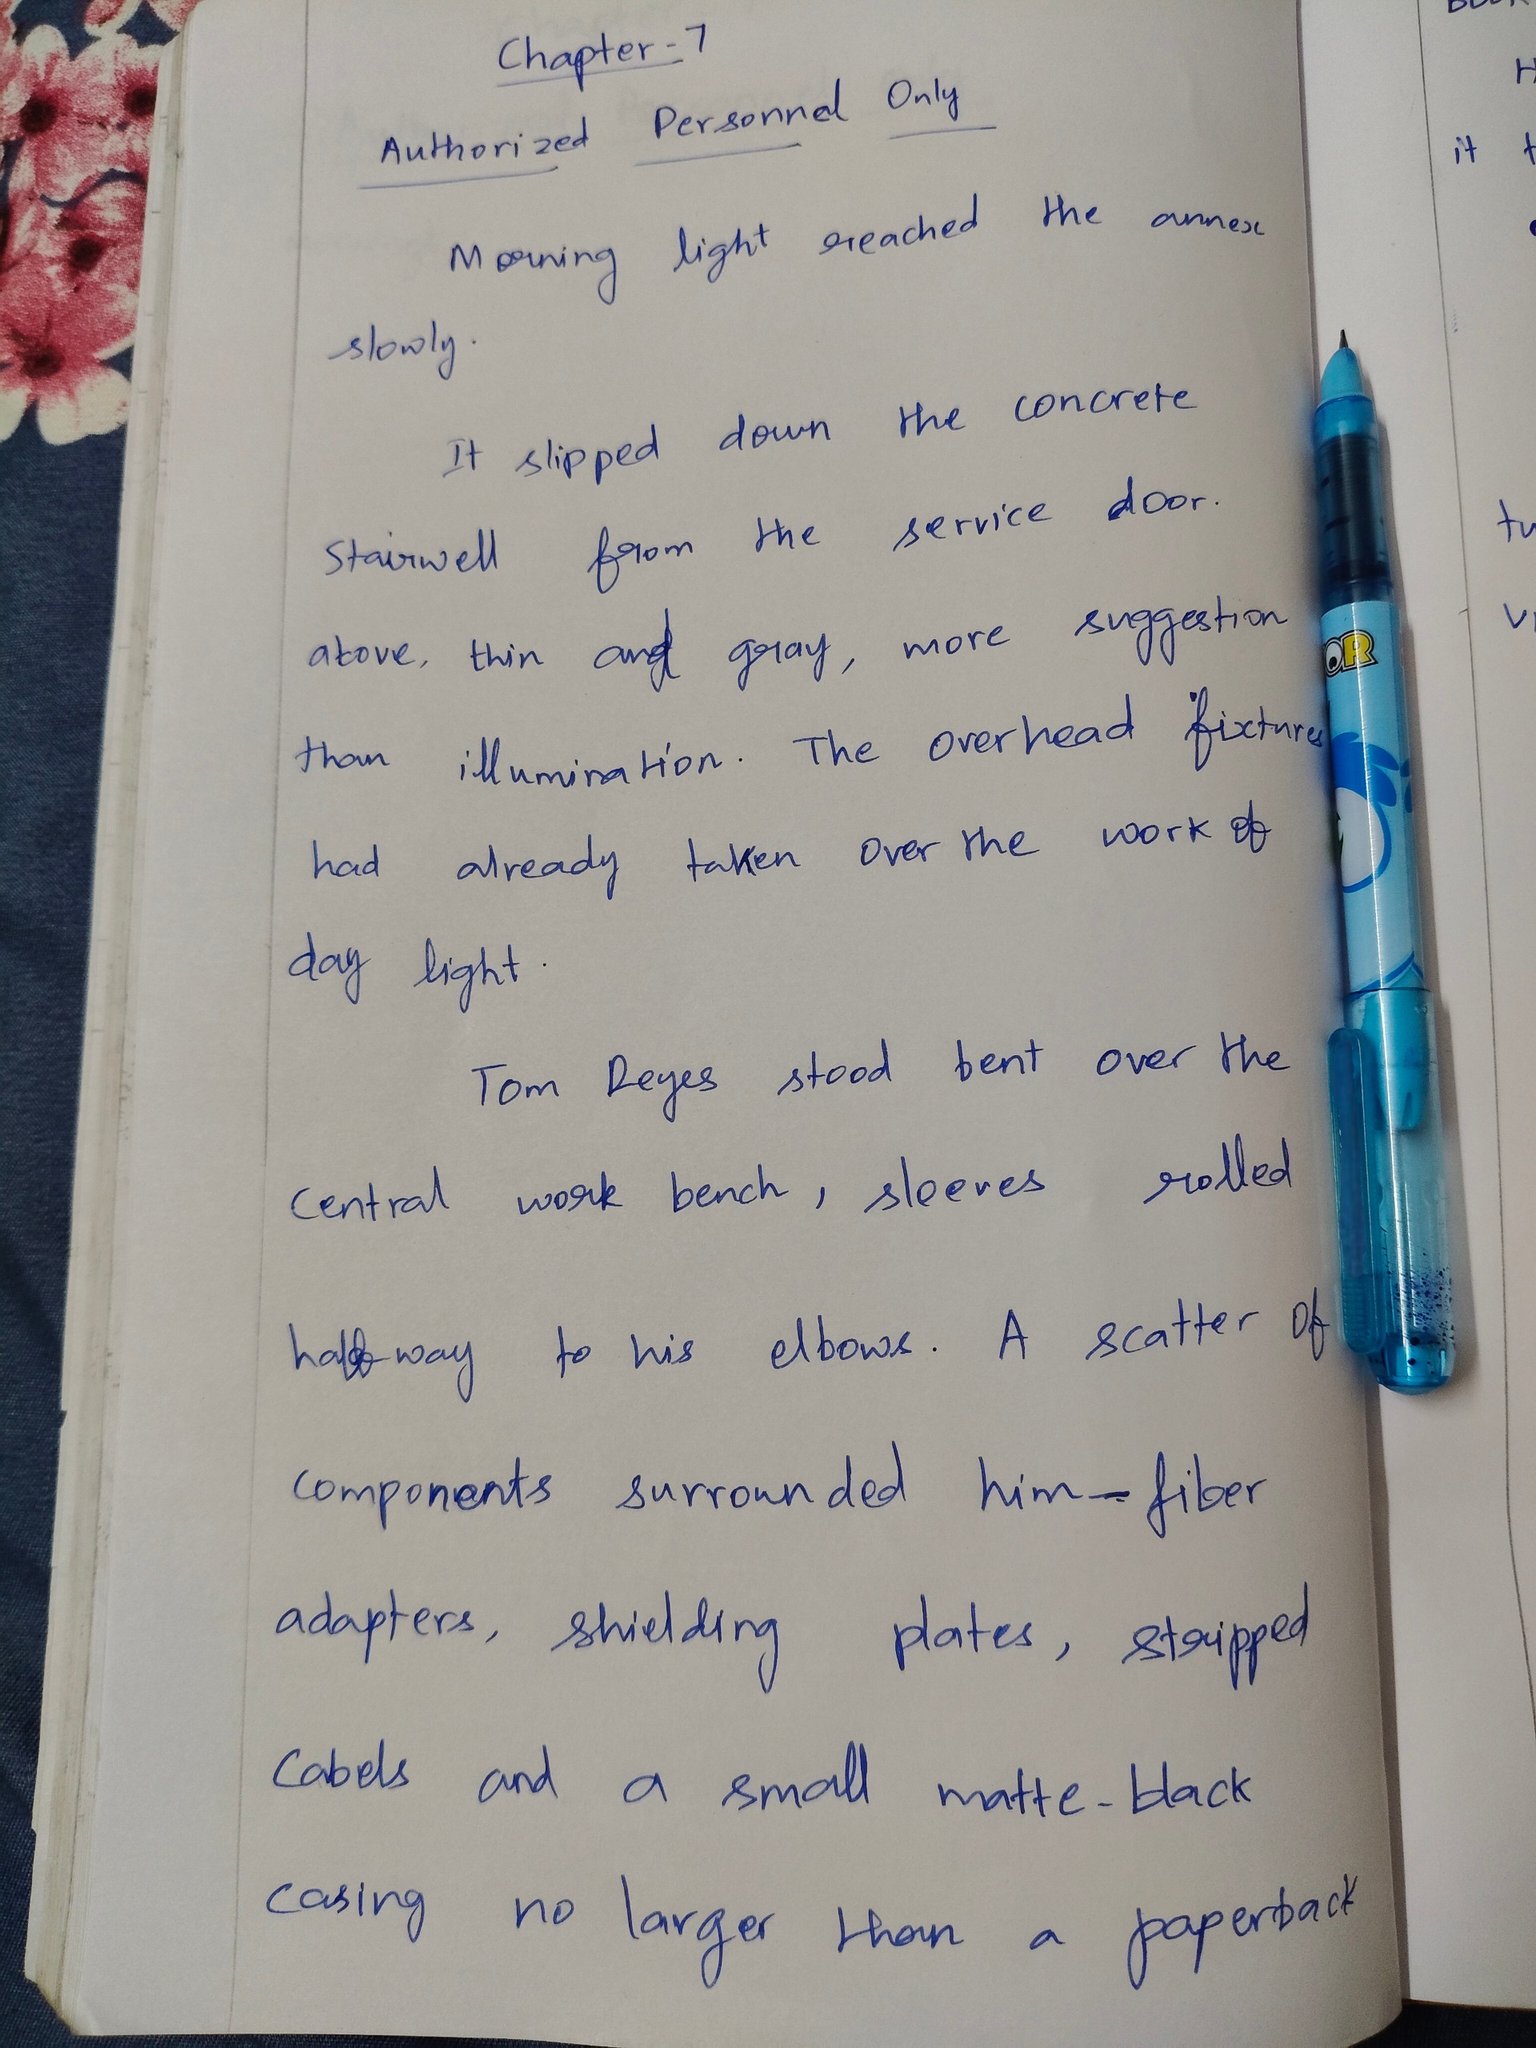 Chapter-7
Authorized Personnel Only
Morning light reached the annex
slowly.
It slipped down the concrete
Stairwell from the service door.
above, thin and gray, more suggestion
than illumination. The overhead fixtures
had already taken over the work of
day light.
Tom Reyes stood bent over the
Central work bench, sleeves rolled
half-way to his elbows. A scatter of
components surrounded him-fiber
adapters, shielding plates, stripped
Cabels and a small matte-black
casing no larger than a paperback
it
OR